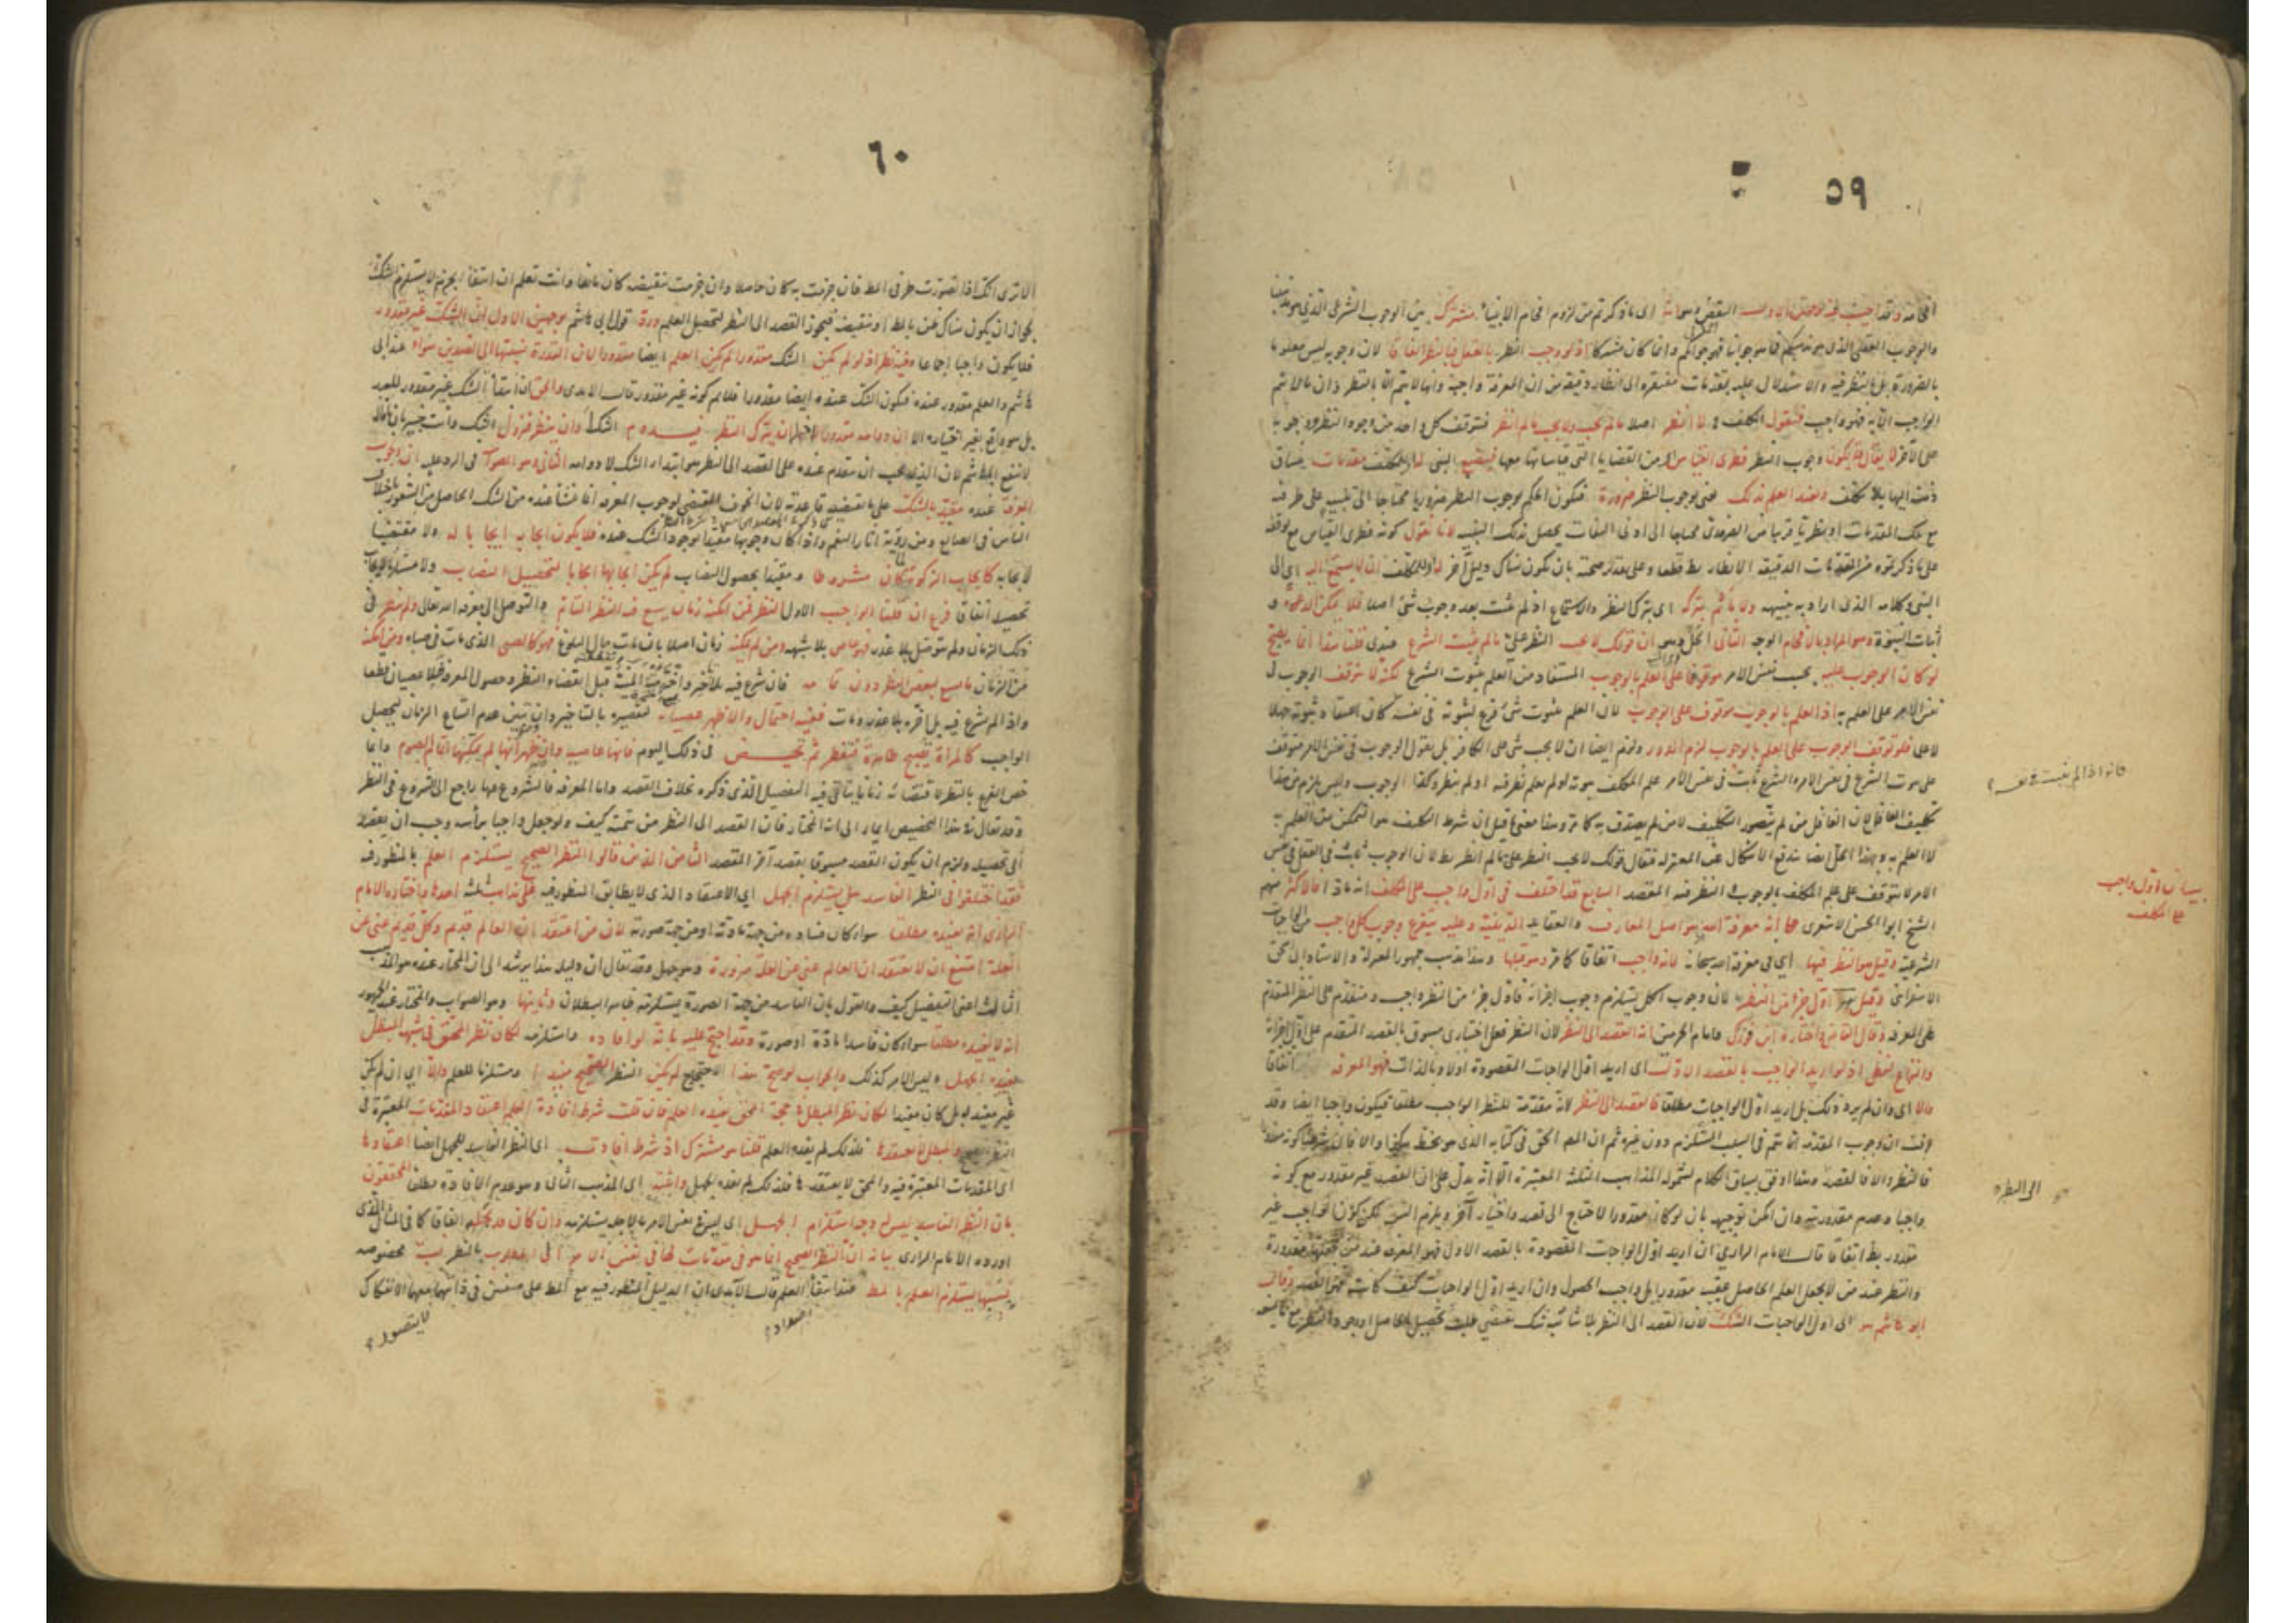 ٥٩
افحامه وقد اجيب عنه بوجهين الاول النقض وهو انه اي ما ذكرتم من لزوم افحام الانبياء مشترك بين الوجوب الشرعي الذي هو مذهبنا
والوجوب العقلي الذي هو مذهبكم فما هو جوابنا فهو جوابكم وانما كان مشتركا اذ لو وجب النظر بالعقل فبالنظر اتفاقا لان وجوبه ليس معلوما
بالضرورة بل بالنظر فيه والاستدلال عليه بمقدمات مفتقرة الى انظار دقيقة من ان المعرفة واجبة وانها لا يتم الا بالنظر وان ما لا يتم
الواجب الا به فهو واجب فيقول المكلف لا انظر اصلا ما لم يجب ولا يجب ما لم انظر فيتوقف كل واحد من وجود النظر ووجوبه
على الآخر لا يقال قد يكون وجوب النظر فطري القياس اي من القضايا التي قياساتها معها فيضع النبي للمكلف مقدمات ينساق
ذهنه اليها بلا تكلف ويفيده العلم بذلك يعني بوجوب النظر ضرورة فيكون الحكم بوجوب النظر ضروريا محتاجا الى تنبيه على طرفيه
مع تلك المقدمات او نظريا قريبا من الضروري محتاجا الى ادنى التفات يحصل بذلك التنبيه لانا نقول كونه فطري القياس مع توقفه
على ما ذكرتموه من المقدمات الدقيقة الانظار بط قطعا وعلى تقدير صحته بان يكون هناك دليل آخر فللمكلف ان لا يستمع اليه اي الى
النبي وكلامه الذي اراد به تنبيهه ولا يأثم بتركه اي بترك النظر والاستماع اذ لم يثبت بعد وجوب شئ اصلا فلا يمكن الدعوة و
اثبات النبوة وهو المراد بالافحام الوجه الثاني الحل وهو ان قولك لا يجب النظر علي ما لم يثبت الشرع عندي قلنا هذا انما يصح
لو كان الوجوب عليه بحسب نفس الامر موقوفا على العلم بالوجوب المستفاد من العلم بثبوت الشرع لكنه لا يتوقف الوجوب في
نفس الامر على العلم به اذ العلم بالوجوب موقوف على الوجوب لان العلم بثبوت شئ فرع لثبوته في نفسه
لا علما فلو توقف الوجوب على العلم بالوجوب لزم الدور ولزم ايضا ان لا يجب شئ على الكافر بل نقول الوجوب في نفس الامر متوقف
على ثبوت الشرع في نفس الامر والشرع ثابت في نفس الامر علم المكلف ثبوته او لم يعلم نظر فيه او لم ينظر وكذا الوجوب وليس يلزم من هذا
تكليف الغافل لان الغافل من لم يتصور التكليف لا من لم يصدق به كما مر وهذا معنى ما قيل ان شرط التكليف هو التمكن من العلم به
لا العلم به وبهذا الحل ايضا يندفع الاشكال عن المعتزلة فيقال قولك لا يجب النظر علي ما لم انظر بط لان الوجوب ثابت بالعقل في نفس
الامر لا يتوقف على علم المكلف بالوجوب والنظر فيه المقصد السابع قد اختلف في اول واجب على المكلف انه ماذا فالاكثر ومنهم
الشيخ ابو الحسن الاشعري على انه معرفة الله اذ هو اصل المعارف والعقايد الدينية وعليه يتفرع وجوب كل واجب من الواجبات
الشرعية وقيل هو النظر فيها اي في معرفة الله سبحانه لانه واجب اتفاقا كما مر وهو قبلها وهذا مذهب جمهور المعتزلة والاستاد ابي اسحق
الاسفرائني وقيل هو اول جزء من النظر لان وجوب الكل يستلزم وجوب اجزائه فاول جزء من النظر واجب ومتقدم على النظر المتقدم
على المعرفة وقال القاضي واختاره ابن فورك وامام الحرمين انه القصد الى النظر لان النظر فعل اختياري مسبوق بالقصد المتقدم على اول اجزائه
والنزاع لفظي اذ لو اريد الواجب بالقصد الاول اي اريد اول الواجبات المقصودة اولا وبالذات فهو المعرفة اتفاقا
والا اي وان لم يرد ذلك بل اريد اول الواجبات مطلقا فالقصد الى النظر لانه مقدمة للنظر الواجب مطلقا فيكون واجبا ايضا وقد
عرفت ان وجوب المقدمة انما يتم في السبب المستلزم دون غيره ثم ان المص الحق في كتابه الذي هو بخطه هكذا والا فان شرطنا كونه مقدورا
فالنظر والا فالقصد وهذا اوفق بسياق الكلام لشمول المذاهب الثلثة المعتبرة الا انه يدل على ان القصد غير مقدور مع كونه
واجبا وعدم مقدوريته وان امكن توجيهه بان لو كان مقدورا لاحتاج الى قصد واختيار آخر ويلزم التس لكن كون الواجب غير
مقدور بط اتفاقا قال الامام الرازي ان اريد اول الواجبات المقصودة بالقصد الاول فهو المعرفة عند من يجعلها مقدورة
والنظر عند من لا يجعل العلم الحاصل عقيبه مقدورا بل واجب الحصول وان اريد اول الواجبات كيف كانت فهو القصد وقال
ابو هاشم هو اي اول الواجبات الشك لان القصد الى النظر بلا سابقة شك يقتضي طلب تحصيل الحاصل او وجود النظر مع ما يمنعه
فانه اذا لم يثبت في نفسه
بيان اول واجب
على المكلف
الى النظر
٦٠
الا ترى انك اذا تصورت طرفي المط فان جزمت به كان حاصلا وان جزمت بنقيضه كان مانعا وانت تعلم ان انتفاء الجزم لا يستلزم الشك
لجواز ان يكون هناك ظن بالمط او بنقيضه فيجوز القصد الى النظر لتحصيل العلم ورد قول ابي هاشم بوجهين الاول ان الشك غير مقدور
فلا يكون واجبا اجماعا وفيه نظر اذ لو لم يكن الشك مقدورا لم يكن العلم ايضا مقدورا لان القدرة نسبتها الى الضدين سواء عند ابي
هاشم والعلم مقدور عنده فيكون الشك عنده ايضا مقدورا فلا يصح كونه غير مقدور قال الآمدي والحق ان ابتداء الشك غير مقدور للعبد
بل هو واقع بغير اختياره الا ان دوامه مقدور اذ له ان يترك النظر فيدوم الشك او ان ينظر فيزول الشك وانت خبير بان هذا
لا ينفع ابا هاشم لان الذي يجب ان يتقدم عنده على القصد الى النظر هو ابتداء الشك لا دوامه الثاني وهو الصواب في الرد عليه ان وجوب
المعرفة عنده مقيد بالشك على ما تقتضيه قاعدته لان الخوف المقتضي لوجوب المعرفة انما نشأ عنده من الشك الحاصل من الشعور باختلاف
الناس في الصانع ومن رؤية آثار النعم واذا كان وجوبها مقيدا بوجود الشك عنده فلا يكون ايجابها ايجابا له ولا مقتضيا
لايجابه كايجاب الزكوة لما كان مشروطا و مقيدا بحصول النصاب لم يكن ايجابها ايجابا لتحصيل النصاب ولا مستلزما لايجاب
تحصيله اتفاقا فرع ان قلنا الواجب الاول النظر فمن امكنه زمان يسع فيه النظر التام والتوصل الى معرفة الله تعالى ولم ينظر في
ذلك الزمان ولم يتوصل بلا عذر فهو عاص بلا شبهة ومن لم يمكنه زمان اصلا بان مات حال البلوغ فهو كالصبي الذي مات في صباه ومن امكنه
من الزمان ما يسع لبعض النظر دون تمامه فان شرع فيه بلا تأخير واخترمته المنية قبل انقضاء النظر وحصول المعرفة فلا عصيان قطعا
واذا لم يشرع فيه بل اخره بلا عذر ومات ففيه احتمال والاظهر عصيانه لتقصيره بالتاخير وان تبين عدم اتساع الزمان لتحصيل
الواجب كالمرأة تصبح طاهرة فتفطر ثم تحيض في ذلك اليوم فانها عاصية وان ظهر انها لم يمكنها اتمام الصوم وانما
خص الفرع بالنظر لاقتضائه زمانا يتأتى فيه التفصيل الذي ذكره بخلاف القصد واما المعرفة فالشروع فيها راجع الى الشروع في النظر
وقد يقال في هذا التخصيص ايماء الى انه المختار فان القصد الى النظر من تتمته كيف ولو جعل واجبا برأسه وجب ان يقصد
الى تحصيله ولزم ان يكون القصد مسبوقا بقصد آخر المقصد الثامن الذين قالوا النظر الصحيح يستلزم العلم بالمنظور فيه
فقد اختلفوا في النظر الفاسد هل يستلزم الجهل اي الاعتقاد الذي لا يطابق المنظور فيه على مذاهب ثلثة احدها واختاره الامام
الرازي انه يفيده مطلقا سواء كان فساده من جهة مادته او من جهة صورته لان من اعتقد ان العالم قديم وكل قديم غني عن
العلة امتنع ان لا يعتقد ان العالم غني عن العلة ضرورة وهو جهل وقد يقال ان دليله هذا يرشد الى ان المختار عنده هو المذهب
الثالث اعني التفصيل كيف والقول بان الفاسد من جهة الصورة يستلزمه ظاهر البطلان وثانيها وهو الصواب والمختار عند الجمهور
انه لا يفيده مطلقا سواء كان فاسدا مادة او صورة وقد احتج عليه بانه لو افاده واستلزمه لكان نظر المحق في شبهة المبطل
يفيده الجهل وليس الامر كذلك والجواب لو صح هذا الاحتجاج لم يكن النظر الصحيح مفيدا ومستلزما للعلم والا اي ان لم يكن
غير مفيد له بل كان مفيدا لكان نظر المبطل في حجة المحق يفيده العلم فان قلت شرط افادة العلم اعتقاد المقدمات المعتبرة في
النظر الصحيح والمبطل لا يعتقدها فلذلك لم يفده العلم قلنا هو مشترك اذ شرط افادته اي النظر الفاسد للجهل ايضا اعتقادها
اي المقدمات المعتبرة فيه والمحق لا يعتقدها فلذلك لم يفده الجهل واثبته اي المذهب الثاني وهو عدم الافادة مطلقا المحققون
بان النظر الفاسد ليس له وجه استلزام الجهل اي ليس في نفس الامر ما لاجله يستلزمه وان كان قد يجلبه اتفاقا كما في المثال الذي
اورده الامام الرازي بيانه ان النظر الصحيح انما هو في مقدمات لها في نفس الامر الى المطلوب بالنظر نسبة مخصوصة
بسببها يستلزم العلم بالمط عند انتفاء العلم قال الآمدي ان الدليل المنظور فيه مع المط على صفتين في ذاتيهما معهما الانفكاك
اضداد
لا يتصور